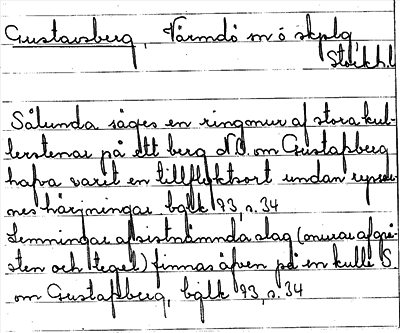 Gustavsberg, Värmdö m ö skplg,
Stockh.l
Sålunda säges en ringmur af stora kul-
lerstenar på ett berg NO. om Gustafsberg
hafva varit en tillflyktsort undan ryssar-
nes härjningar. bglk 93, s. 34
Lemningar af sistnämnda slag (murar af grå-
sten och tegel) finnas äfven på en kulle S.
om Gustafsberg, bglk 93, s. 34